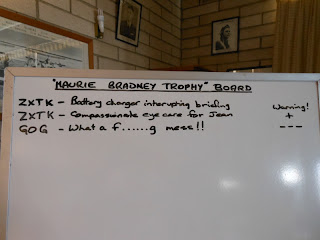 "MAURIE BRADNEY TROPHY" BOARD
ZXTK - Battery charger interupting briefing Warning!
ZXTK - Compassionate eye care for Jean +
GOG - What a f......g mess!! - - -